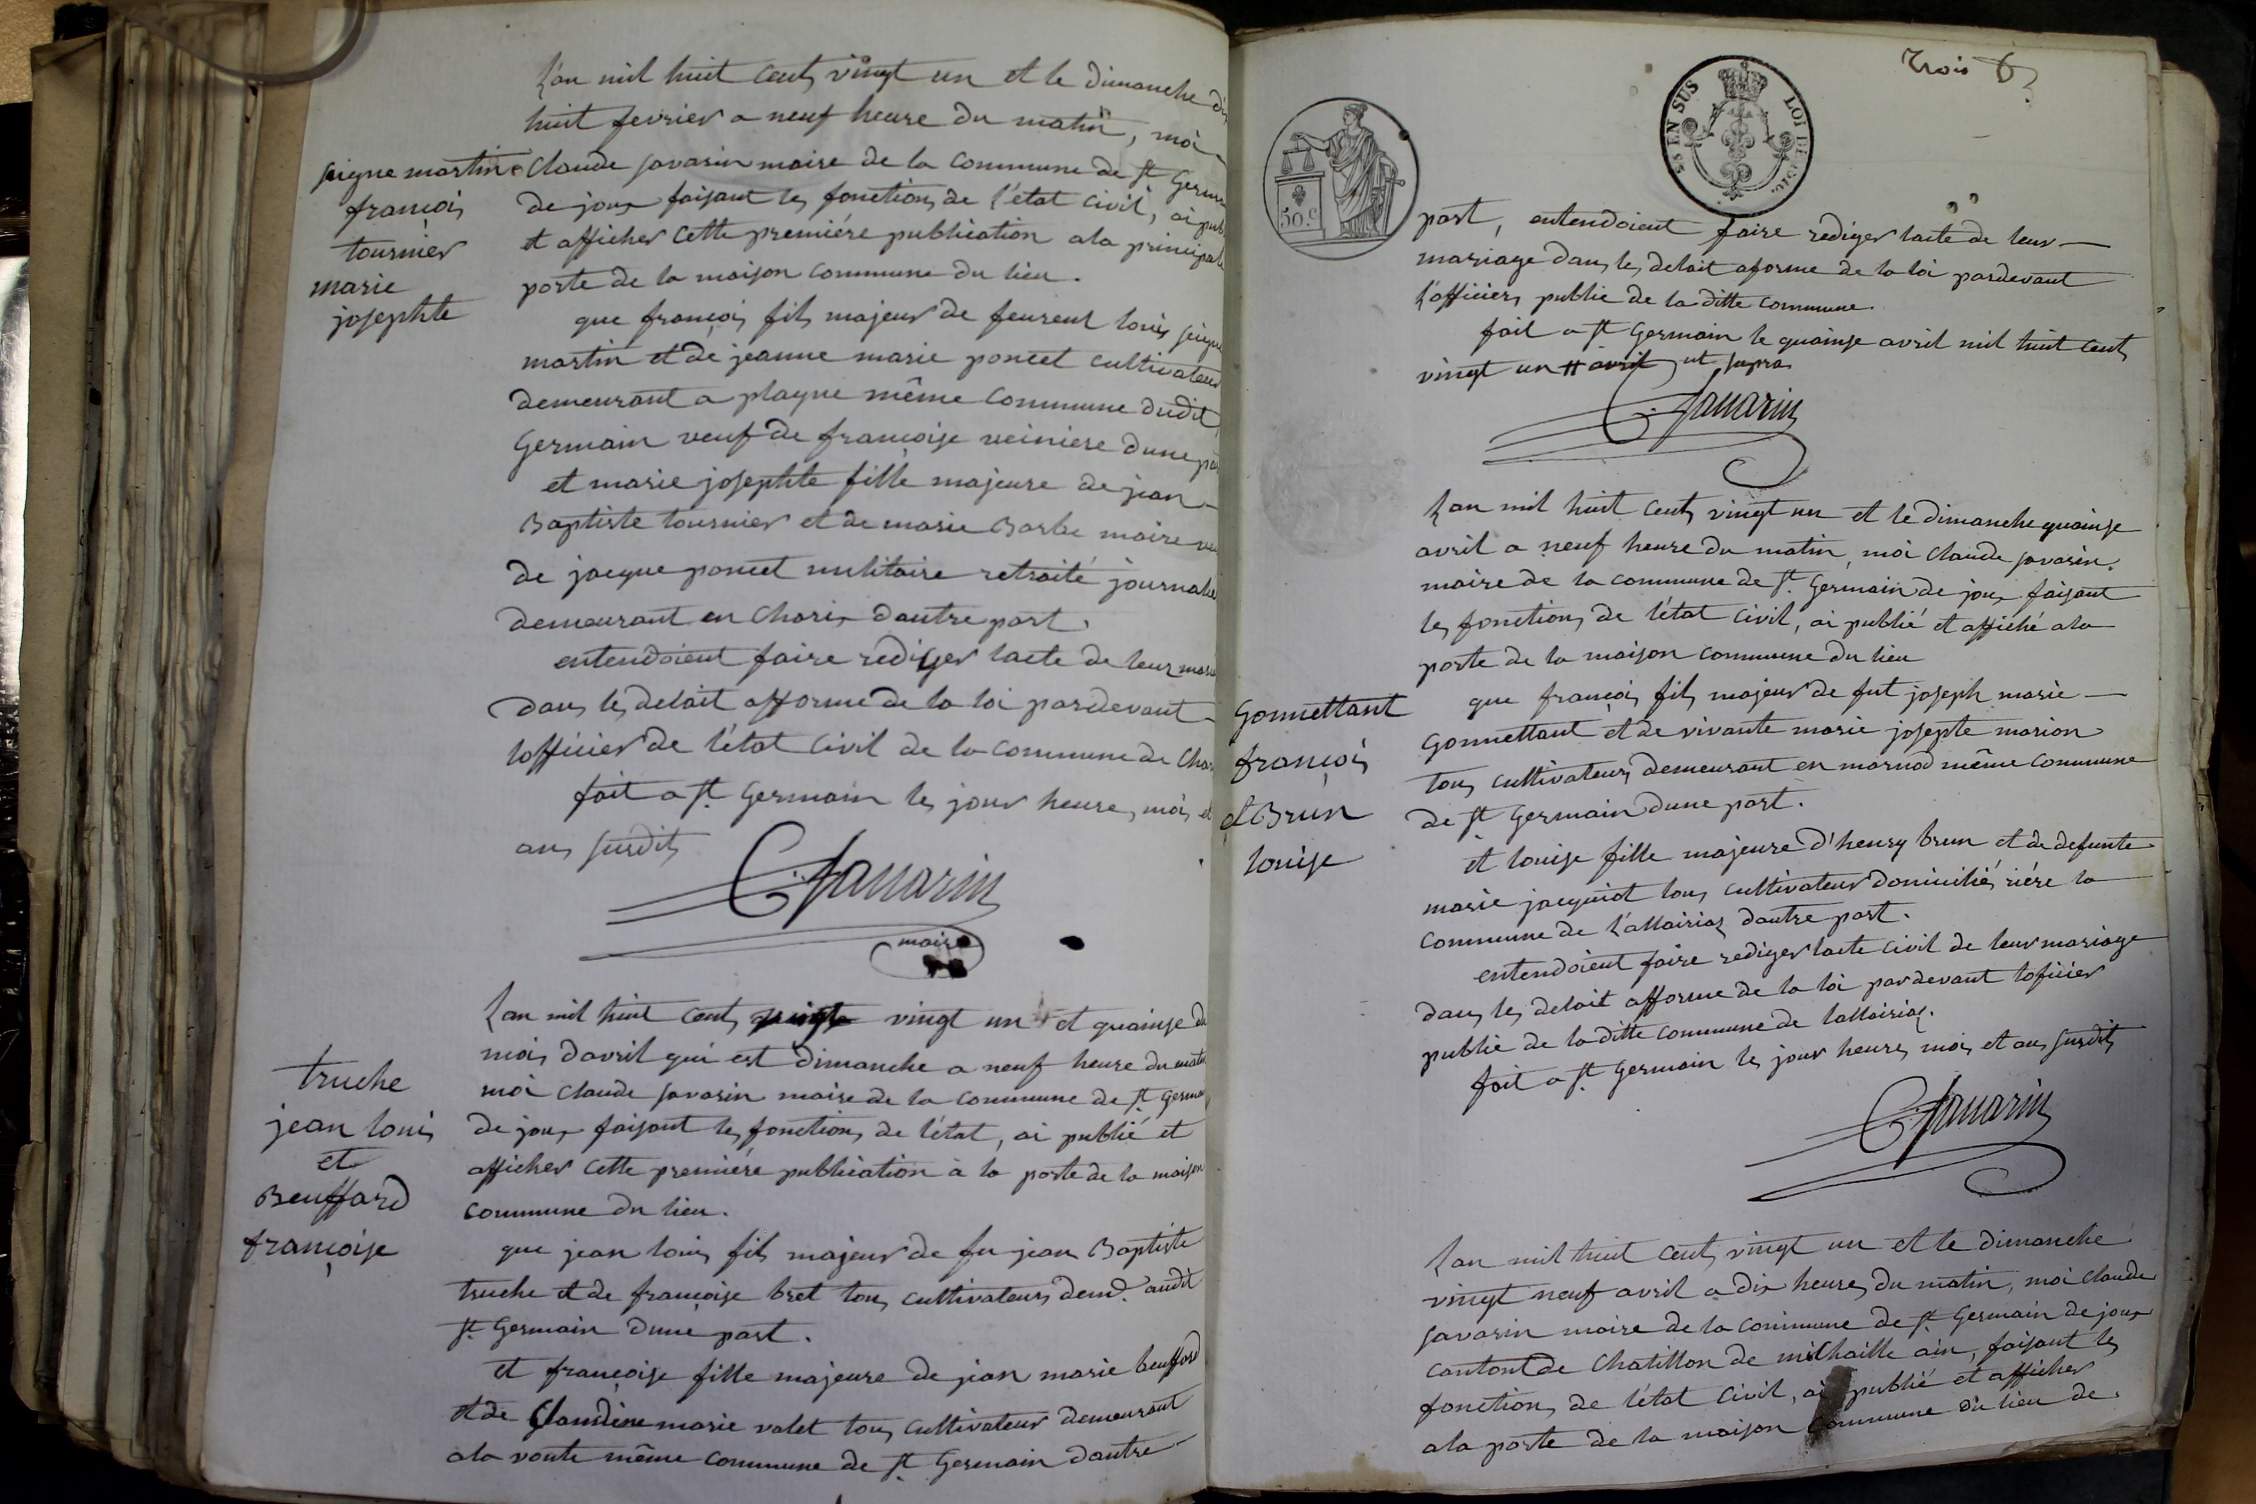 L'an mil huit cents vingt un et le dimanche dix
huit fevrier a neuf heure du matin, moi
Claude savarin maire de la commune de st Germ
de joux faisant les fonctions de l'état civil, ai pub
et afficher cette première publication ala principale
porte de la maison commune du lieu.
seigne martin
françois
tournier
marie
josephte
que françois fils majeur de feurent louis seigne
martin et de jeanne marie poncet cultivateur
demeurant a plagne même commune dudit
Germain veuf de françoise veiniere dune par
et marie josephte fille majeure de jean
Baptiste tournier et de marie Barbe maire veu
de jacque poncet militaire retraité journalie
demeurant en Charix dautre part.
entendoient faire rediger lacte de leur mari
dans les delait afforme de la loi pardevant
lofficier de l'état civil de la commune de Char
fait a st Germain les jour heure, mois et
ans susdits
C. Savarin
maire
Lan mil huit cents vingt un et quainse du
mois davril qui est dimanche a neuf heure du matin
moi claude savarin maire de la commune de st germa
de joux faisant les fonctions de l'état, ai publié et
afficher cette première publication à la porte de la maison
commune du lieu.
truche
jean louis
et
Beuffard
françoise
que jean louis fils majeur de fu jean Baptiste
truche et de françoise bret tous cultivateurs demd. audit
st Germain dune part.
et françoise fille majeure de jean marie beuffard
et de Claudine marie valet tous cultivateur demeurant
ala voute même commune de st Germain dautre
Trois
SUS EN SUS
LOI DE 1816.
50.c
part, entendoient faire rediger lacte de leur
mariage dans les delait aforme de la loi pardevant
l'officiers public de la ditte commune
fait a st Germain le quainse avril mil huit cents
vingt un avril ut supra
C. Savarin
Lan mil huit cents vingt un et le dimanche quainse
avril a neuf heure du matin, moi claude savarin.
maire de la commune de st Germain de joux faisant
les fonctions de l'état civil, ai publié et affiché ala
porte de la maison commune du lieu
Gonnettant
françois
et Brun
louise
que françois fils majeur de fut joseph marie
gonnettant et de vivante marie josepte marion
tous cultivateurs demeurant en marnod même commune
de st Germain dune part.
et louise fille majeure d'henry brun et de defunte
marie jacquiot tous cultivateur domicilié rière la
commune de l'allairiaz dautre part.
entendoient faire rediger lacte civil de leur mariage
dans les delait afforme de la loi pardevant loficier
public de la ditte commune de lallairiaz.
fait a st Germain les jour heures mois et ans susdits
C. Savarin
Lan mil huit cents vingt un et le dimanche
vingt neuf avril a dix heures du matin, moi claude
savarin maire de la commune de st Germain de joux
canton de Chatillon de michaille ain, faisant les
fonctions de l'état civil, ai publié et afficher
ala porte de la maison commune du lieu de